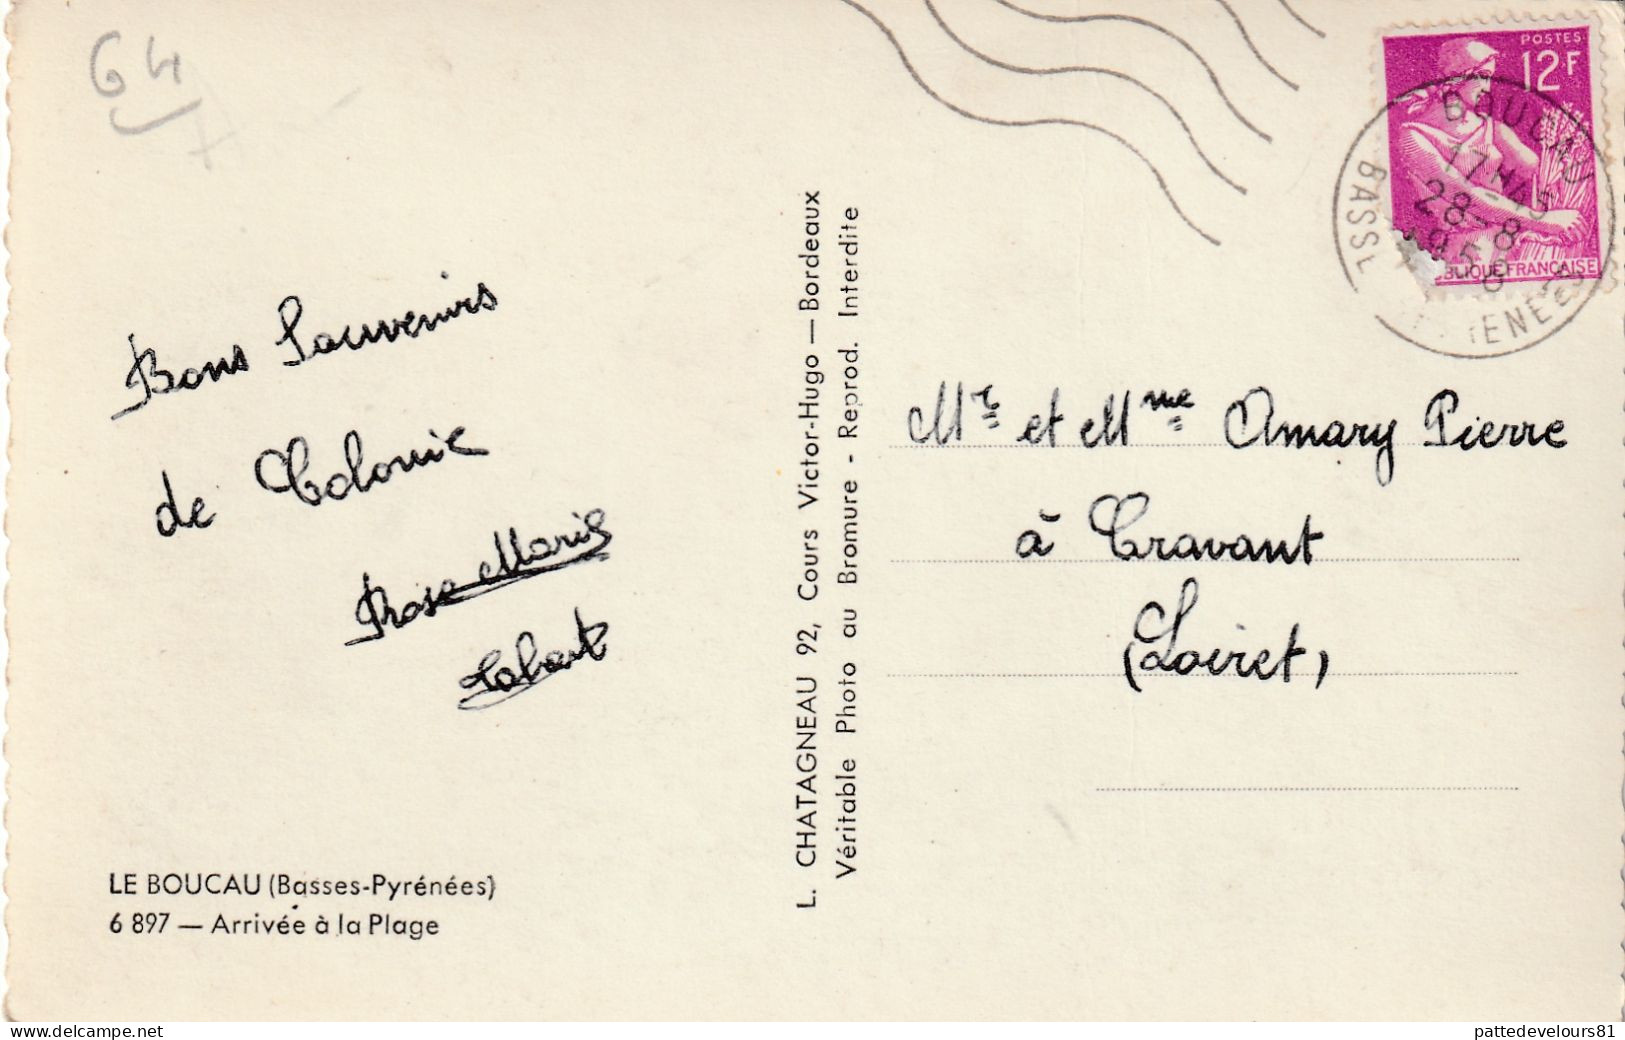 64
Bons Souvenirs
de Colonie
Rose Marie
Labart
LE BOUCAU (Basses-Pyrénées)
6 897 — Arrivée à la Plage
L. CHATAGNEAU 92, Cours Victor-Hugo — Bordeaux
Véritable Photo au Bromure - Reprod. Interdite
POSTES
12F
BOUCAU
17H45
28-8
1958
Mr et Mme Amary Pierre
à Cravant
(Loiret)
www.delcampe.net
pattedevelours81